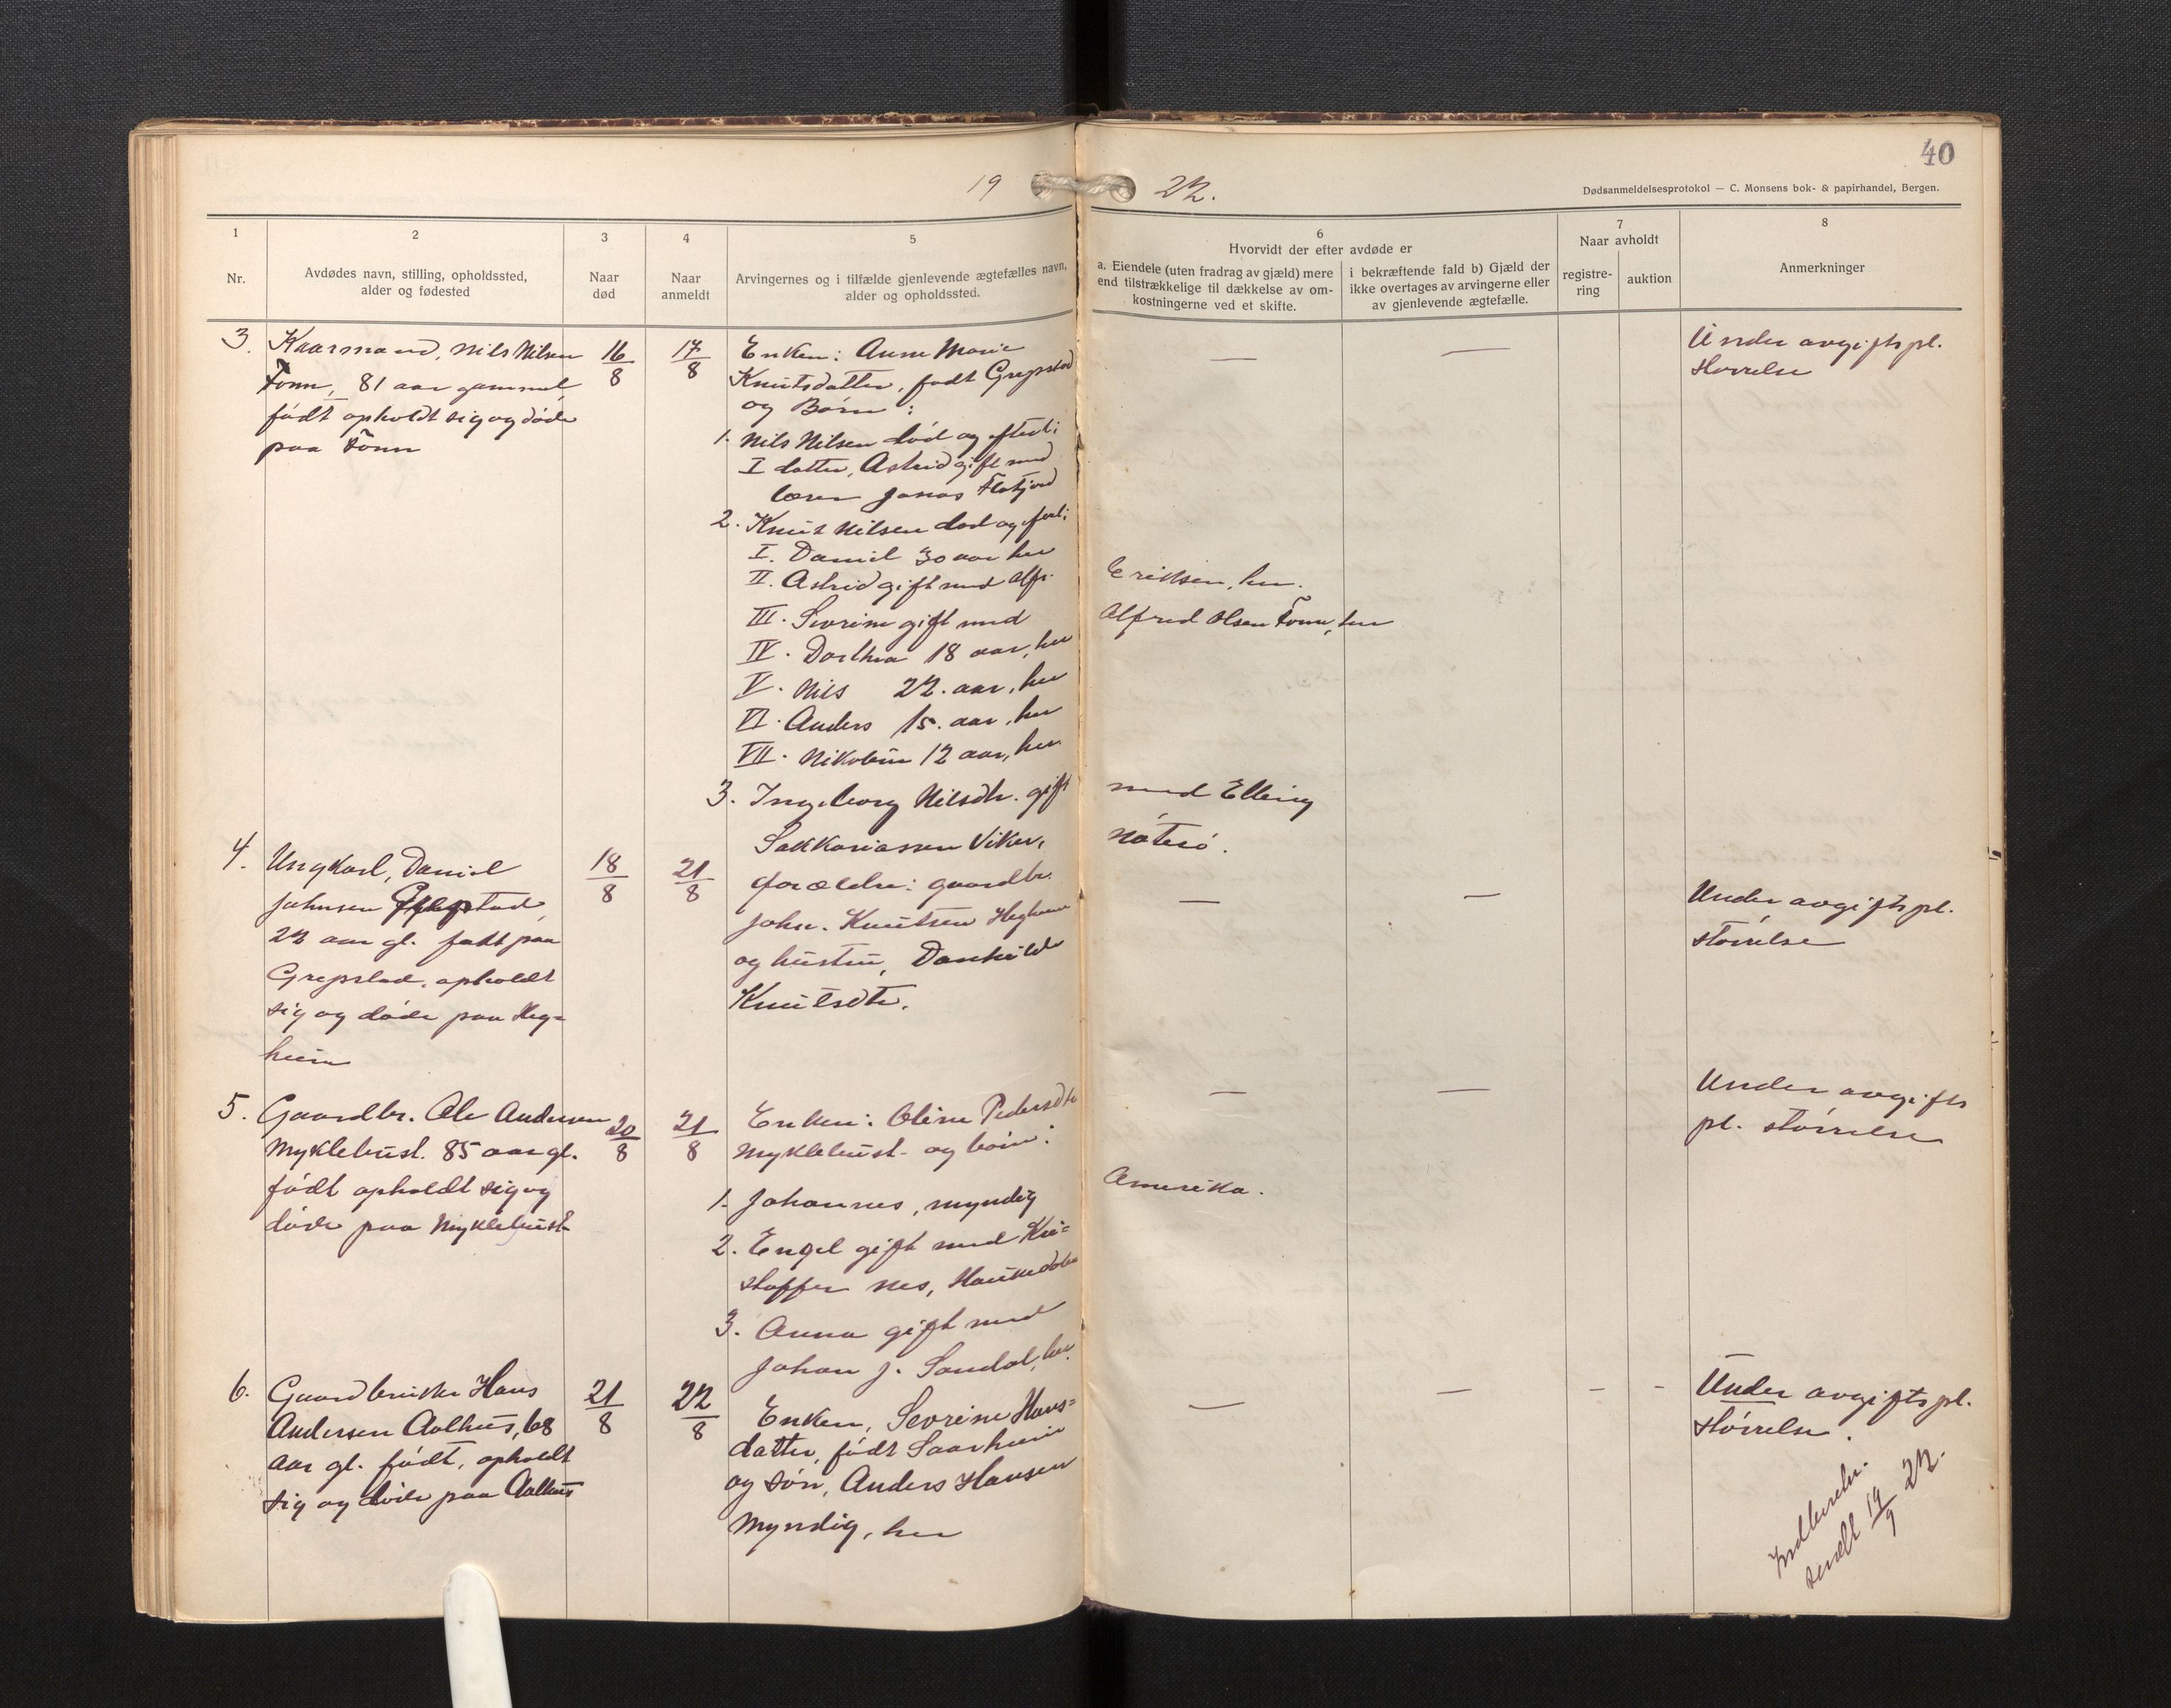 40
19 22.
Dødsanmeldelsesprotokol — C. Monsens bok- & papirhandel, Bergen.
1
Nr.
2
Avdødes navn, stilling, opholdssted,
alder og fødested
3
Naar
død
4
Naar
anmeldt
5
Arvingernes og i tilfælde gjenlevende ægtefælles navn,
alder og opholdssted.
6
Hvorvidt der efter avdøde er
a. Eiendele (uten fradrag av gjæld) mere
end tilstrækkelige til dækkelse av om-
kostningerne ved et skifte.
i bekræftende fald b) Gjæld der
ikke overtages av arvingerne eller
av gjenlevende ægtefælle.
7
Naar avholdt
registre-
ring
auktion
8
Anmerkninger
3. Kaarmand, Nils Nilsen
Tonn, 81 aar gammel,
født opholdt sig og døde
paa Tonn
16/8
17/8
Enken: Anne Marie
Knutsdatter, født Grepstad
og Børn:
1. Nils Nilsen død og efterl:
I datter, Astrid gift med
lærer Jonas Flatjord
2. Knut Nilsen død og efterl:
I. Daniel 30 aar her
II. Astrid gift med Alfr. Eriksen, her.
III. Sevrine gift med Alfred Olsen Tonn, her
IV. Dorthea 18 aar, her
V. Nils 22. aar, her
VI. Anders 15. aar, her
VII. Nikoline 12 aar, her
3. Ingeborg Nilsdtr. gift med Elling
Sakkariassen Viker, Nøterø.
— —
Under avgiftspl.
størrelse
4. Ungkarl, Daniel
Johnsen Grepstad,
22 aar gl. født paa
Grepstad, opholdt
sig og døde paa Heg=
heim
18/8
21/8
Forældre: gaardbr.
John. Knutsen Hegheim
og hustru, Danhild
Knutsdtr.
— —
Under avgiftspl.
størrelse
5. Gaardbr. Ole Andersen
Myklebust. 85 aar gl.
født opholdt sig og
døde paa Myklebust
20/8
21/8
Enken: Oline Pedersdtr
Myklebust- og børn:
1. Johannes, myndig Amerika.
2. Engel gift med Kri=
stoffer Nes, Haukedalen
3. Anna gift med
Johan J. Sandal, her.
— —
Under avgifts
pl. størrelse
6. Gaardbruker Hans
Andersen Aalhus, 68
aar gl. født, opholdt
sig og døde paa Aalhus
21/8
22/8
Enken, Sevrine Hans=
datter, født Saarheim
og søn, Anders Hansen
Myndig, her
— — - -
Under avgiftspl.
størrelse.
Indberetn.
sendt 19/9 22.